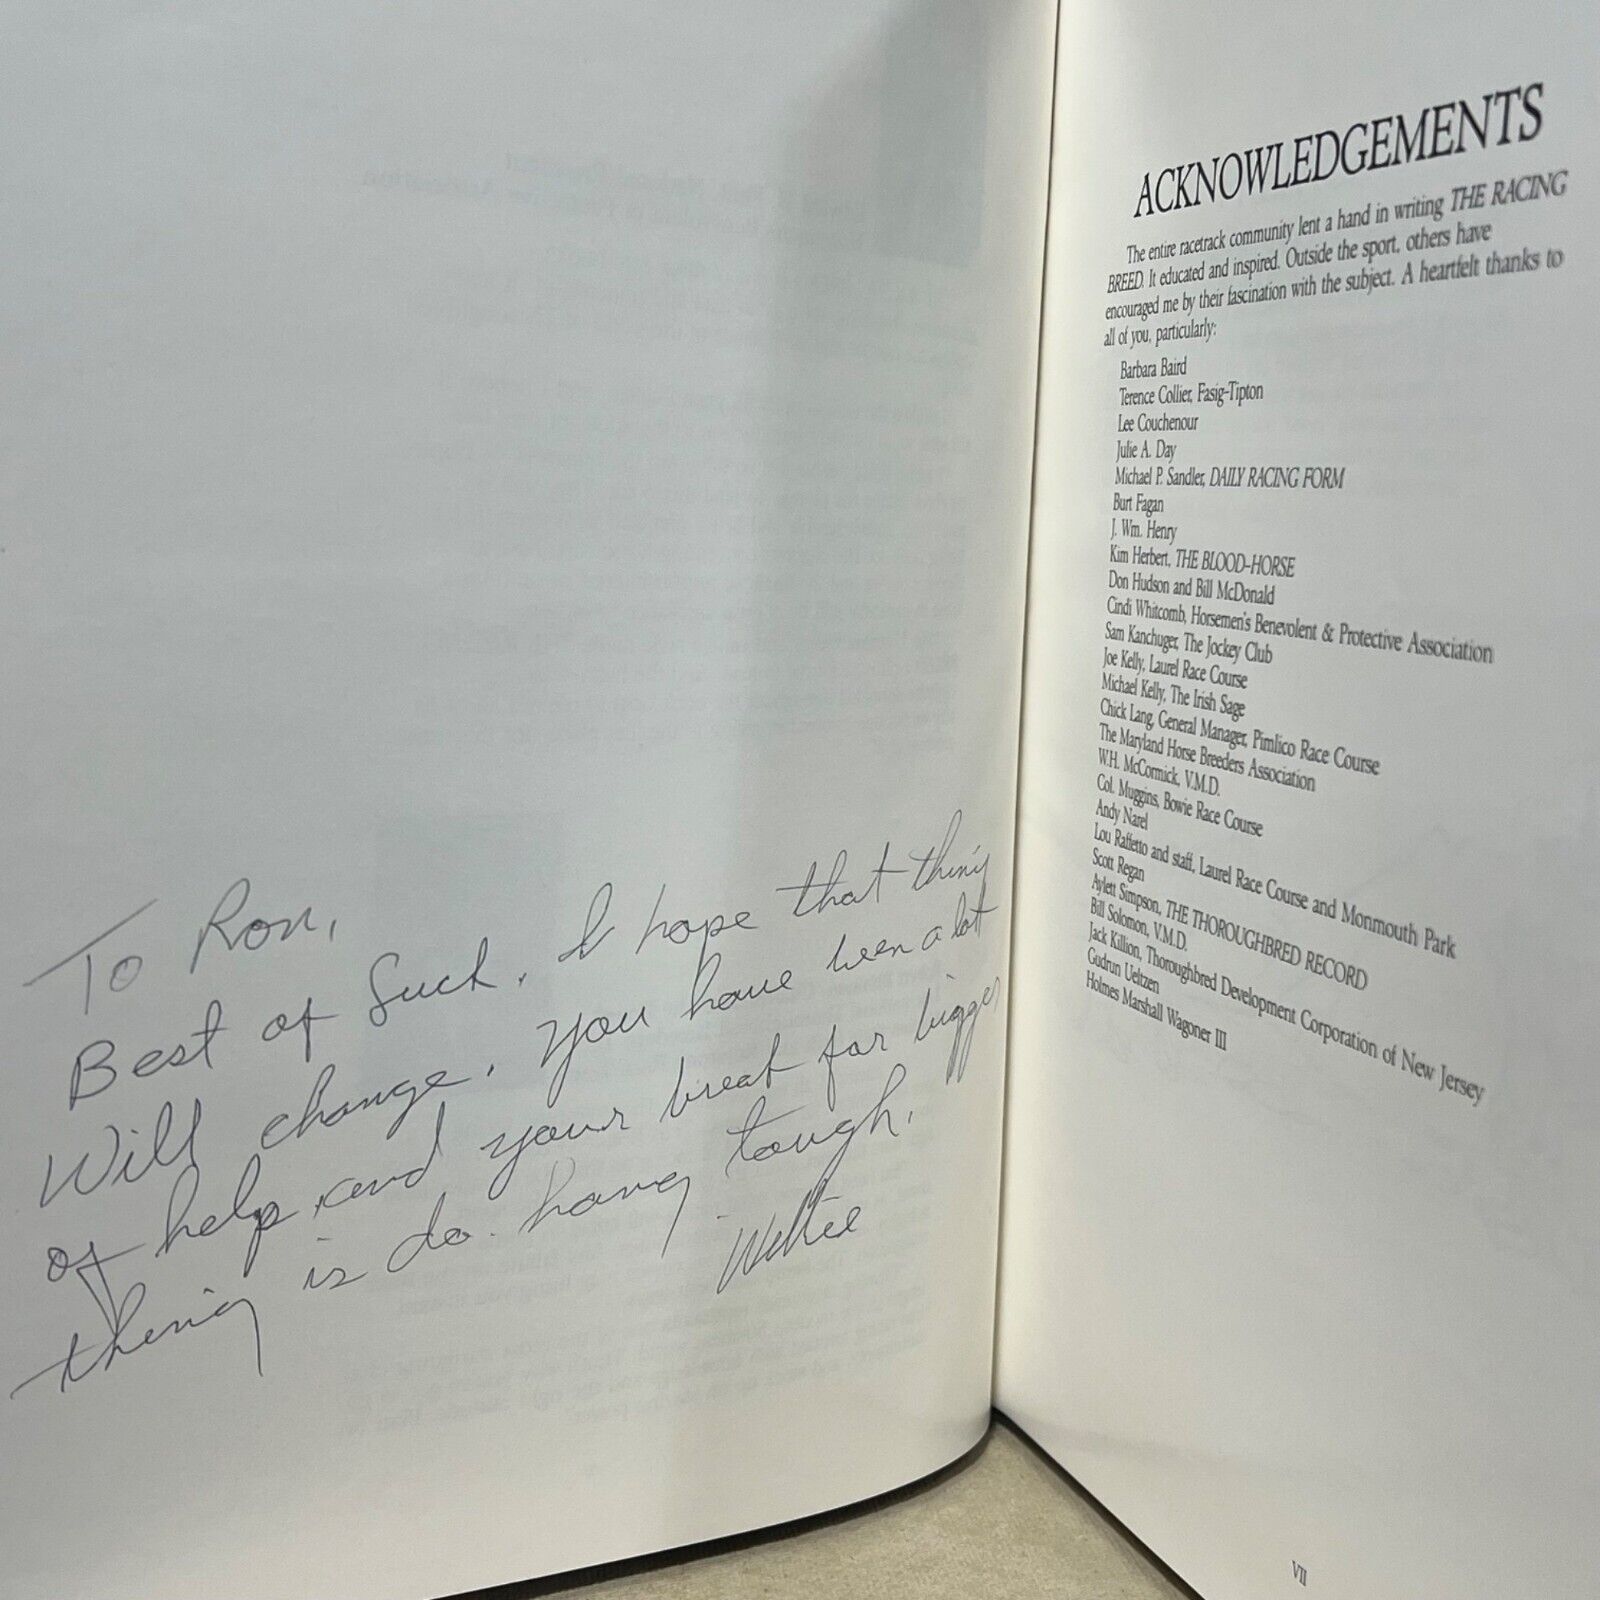 To Ron,
Best of Luck. I hope that thing
Will change. You have been a lot
of help and your break for bigger
thing is do. hang tough.
Willie
ACKNOWLEDGEMENTS
The entire racetrack community lent a hand in writing THE RACING
BREED. It educated and inspired. Outside the sport, others have
encouraged me by their fascination with the subject. A heartfelt thanks to
all of you, particularly:
Barbara Baird
Terence Collier, Fasig-Tipton
Lee Couchenour
Julie A. Day
Michael P. Sandler, DAILY RACING FORM
Burt Fagan
J. Wm. Henry
Kim Herbert, THE BLOOD-HORSE
Don Hudson and Bill McDonald
Cindi Whitcomb, Horsemen's Benevolent & Protective Association
Sam Kanchuger, The Jockey Club
Joe Kelly, Laurel Race Course
Michael Kelly, The Irish Sage
Chick Lang, General Manager, Pimlico Race Course
The Maryland Horse Breeders Association
W.H. McCormick, V.M.D.
Col. Muggins, Bowie Race Course
Andy Narel
Lou Raffetto and staff, Laurel Race Course and Monmouth Park
Scott Regan
Aylett Simpson, THE THOROUGHBRED RECORD
Bill Solomon, V.M.D.
Jack Killion, Thoroughbred Development Corporation of New Jersey
Gudrun Ueltzen
Holmes Marshall Wagoner III
VII